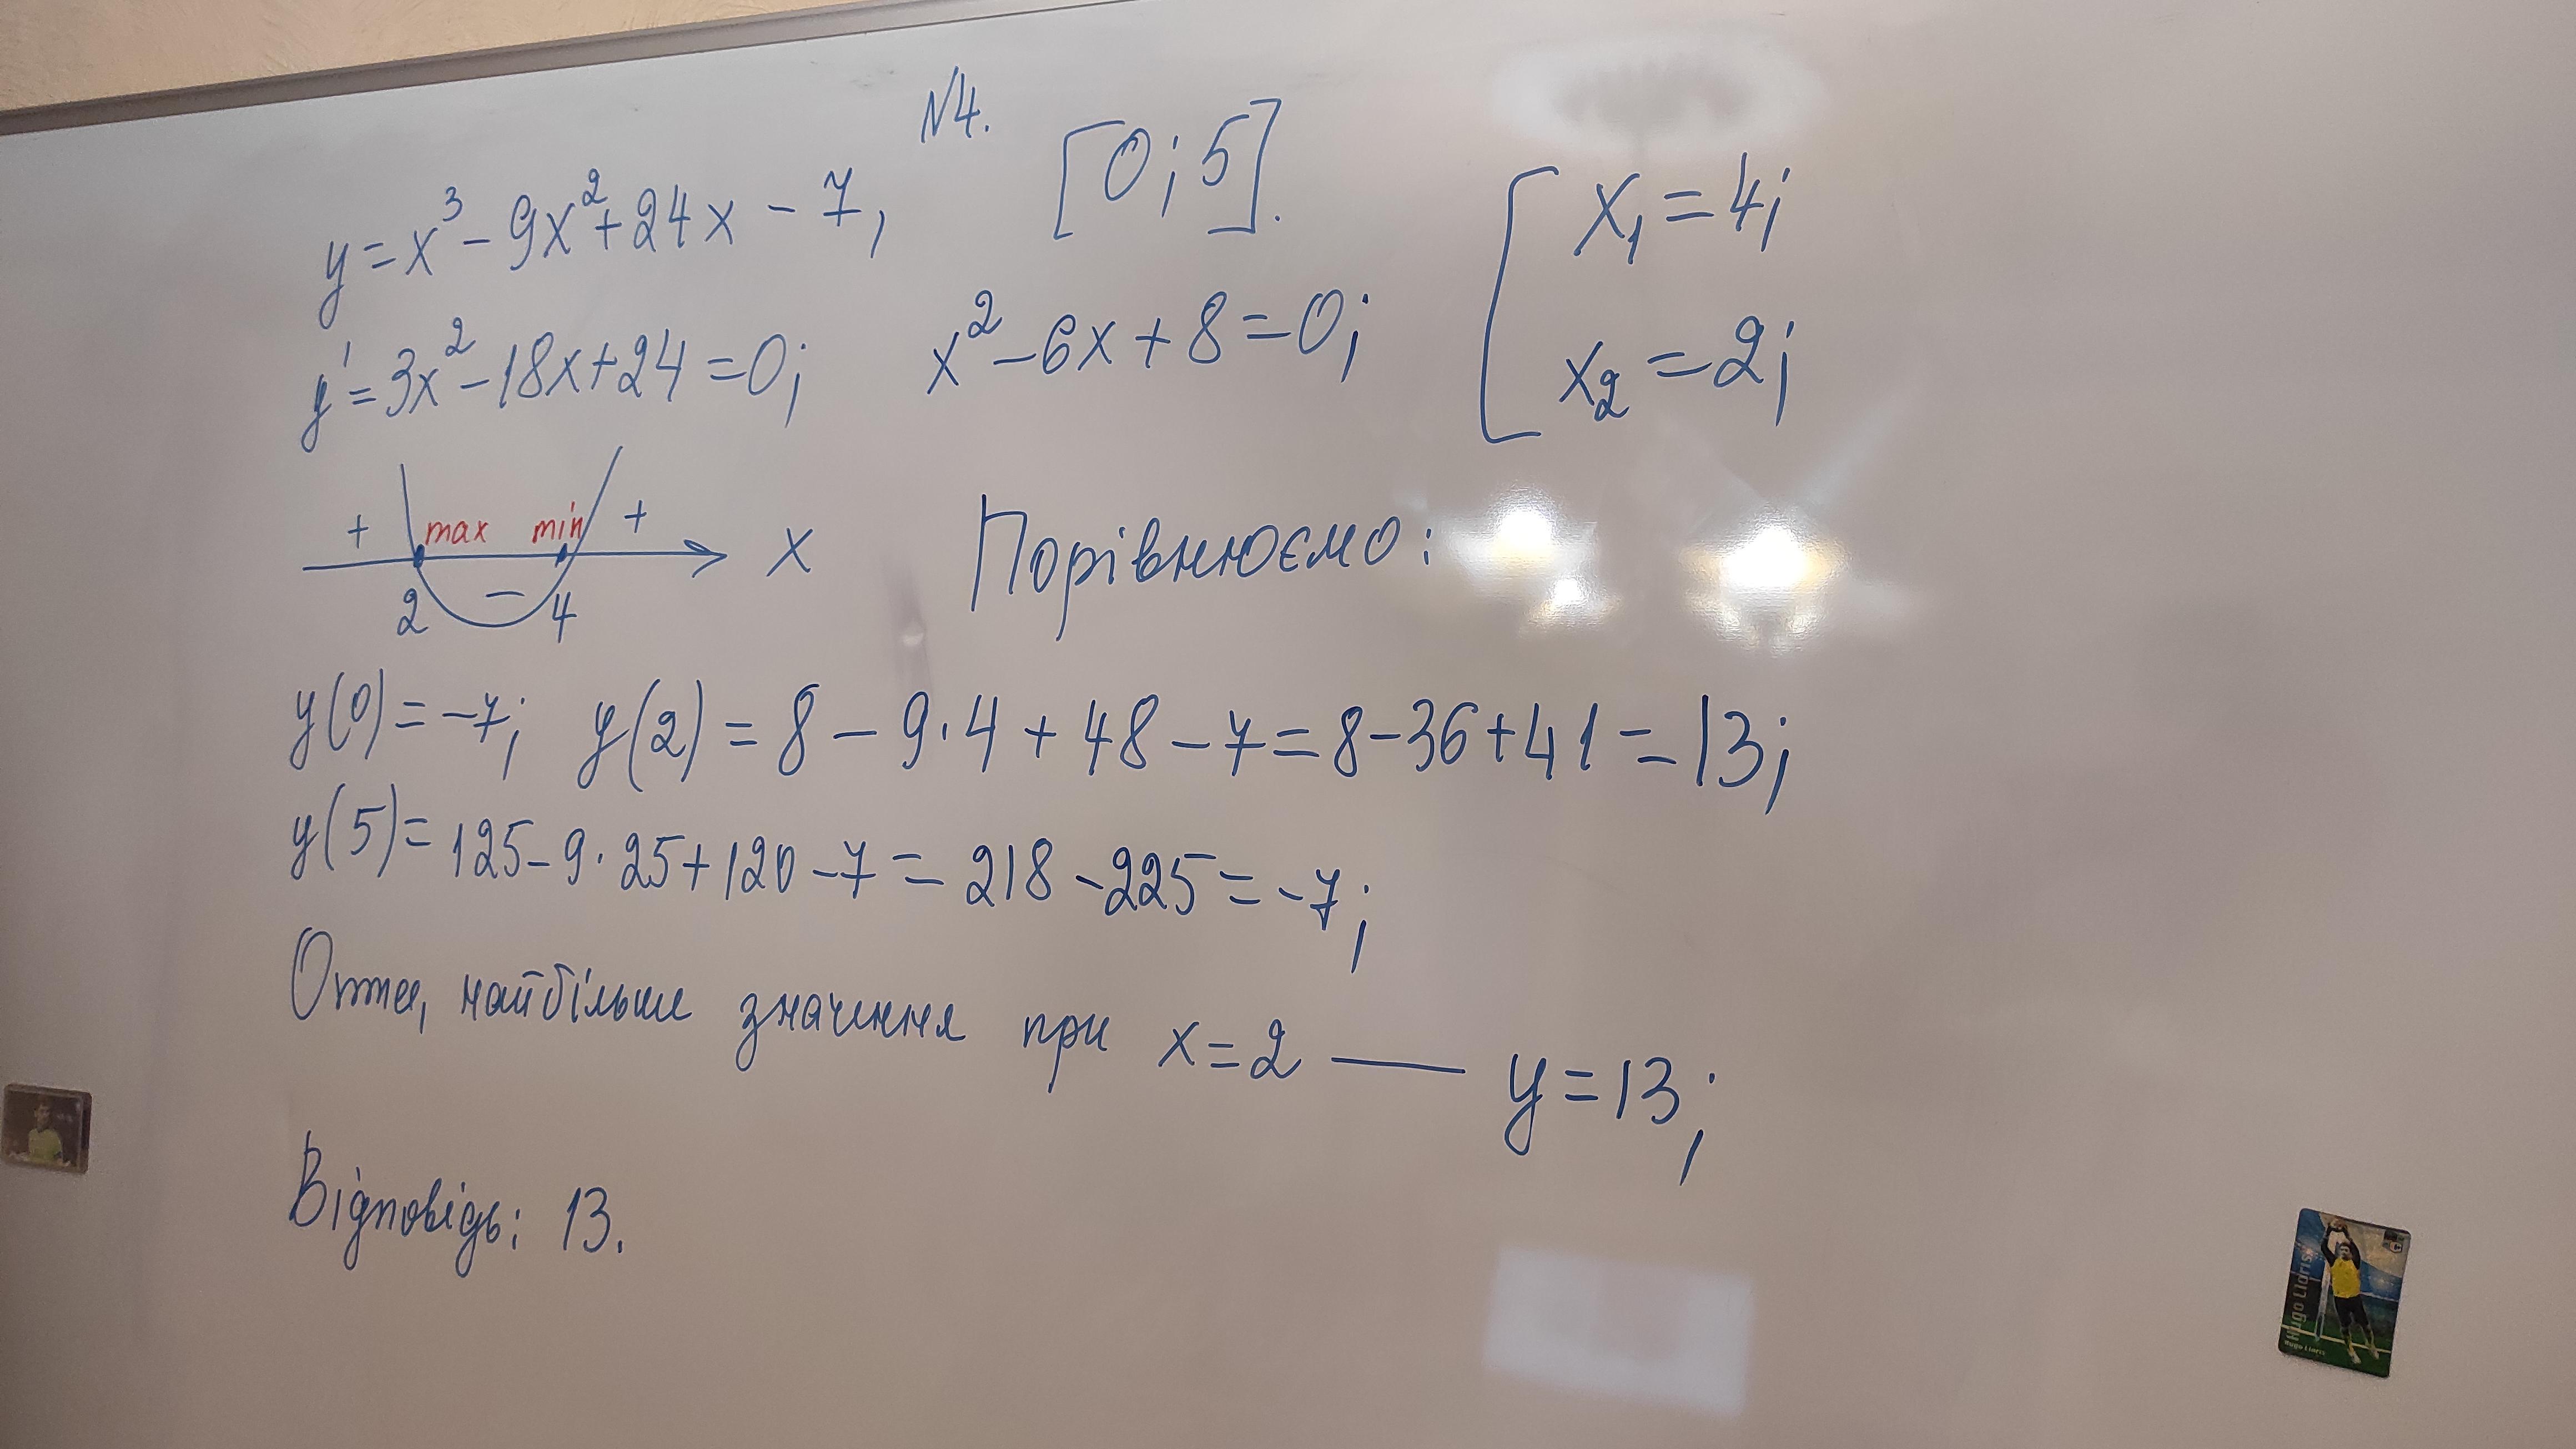 N4.
y = x³ - 9x² + 24x - 7, [0; 5].
y' = 3x² - 18x + 24 = 0; x² - 6x + 8 = 0; [ x₁ = 4; x₂ = 2;
+ max min + x
2 - 4
Порівнюємо:
y(0) = -7; y(2) = 8 - 9·4 + 48 - 7 = 8 - 36 + 41 = 13;
y(5) = 125 - 9·25 + 120 - 7 = 218 - 225 = -7;
Отже, найбільше значення при x = 2 — y = 13;
Відповідь: 13.
Hugo Lloris
Hugo Lloris